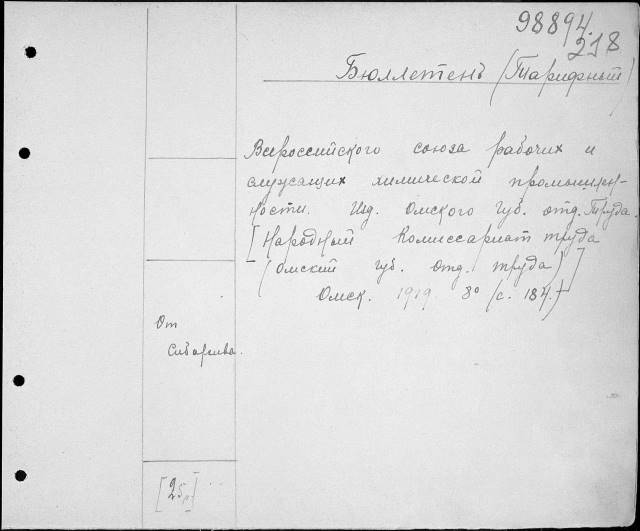 98894.
218
Бюллетень (Тарифный)
Всероссийского союза рабочих и
служащих химической промышлен-
ности. Изд. Омского Губ. отд. Труда.
[Народный Комиссариат труда
(Омский губ. отд. труда)]
Омск. 1919. 8° (с. 184.)
От
Сибархива.
[25р]